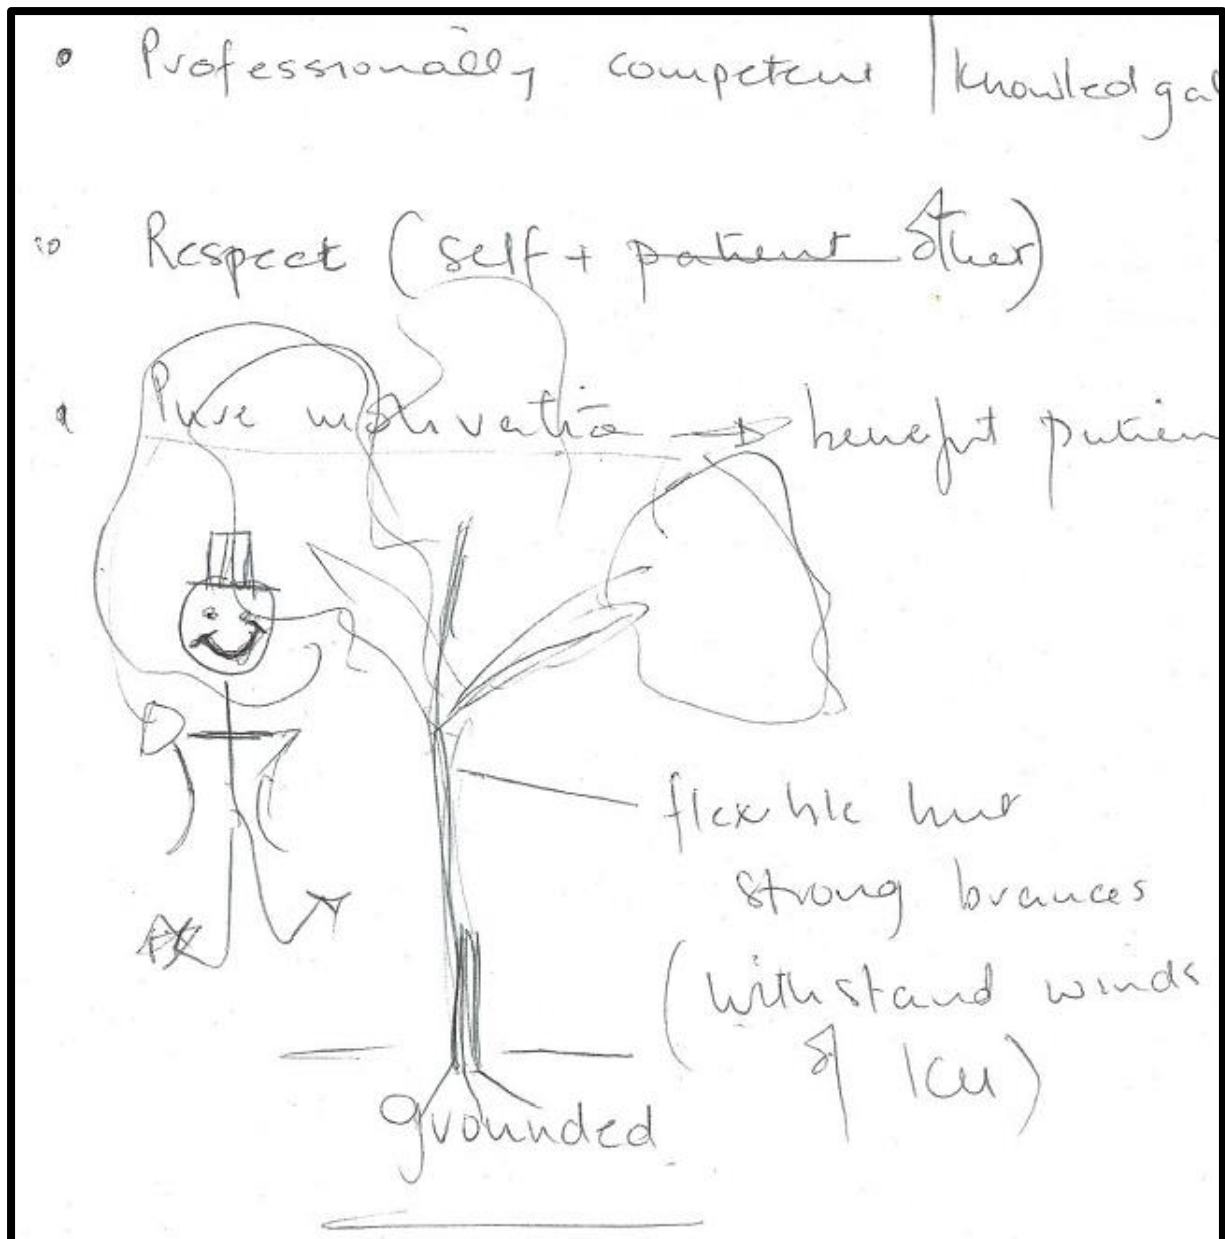 • Professionally competent | knowledga
• Respect (self + patient other)
• Pure motivation → benefit patien
flexible but
strong brances
(withstand winds
of ICU)
grounded